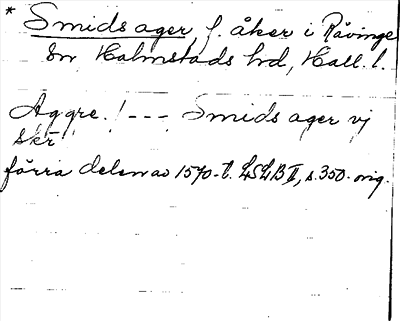 * Smidsager, f. åker i Rävinge
sn Halmstads hd, Hall. l.
Aggre. ! --- Smidsager vj
skr
förra delen av 1570-t. LSLB II, s. 350. orig.